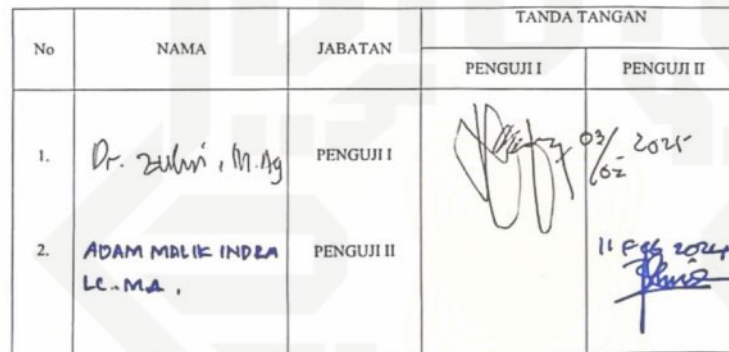 No NAMA JABATAN TANDA TANGAN
PENGUJI I PENGUJI II
1. Dr. Zulwi, M.Ag PENGUJI I 03/02 2025
2. ADAM MALIK INDRA PENGUJI II 11 FEB
LC.MA.